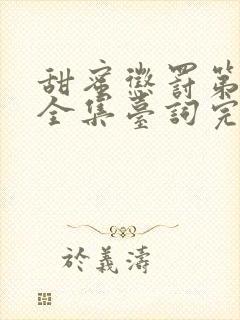 甜蜜懲罰第
全集臺詞完
於義濤